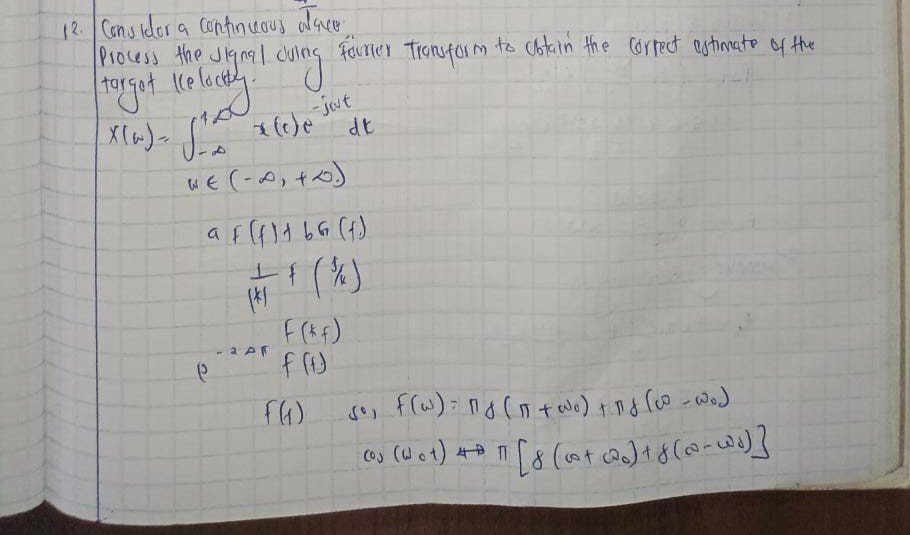 12. Consider a continuous Wave.
Process the signal using Fourier Transform to obtain the correct estimate of the
target velocity.
X(ω) = ∫_{-∞}^{+∞} x(t) e^{-jωt} dt
w ∈ (-∞, +∞)
a F(f) + b G(f)
1/|k| f (f/k)
F(kf)
e^{-2Δπ} F(f)
F(f) so, F(ω) = π δ(π + ω₀) + π δ(ω - ω₀)
cos(ω₀t) ↔ π [δ(ω + ω₀) + δ(ω - ω₀)]